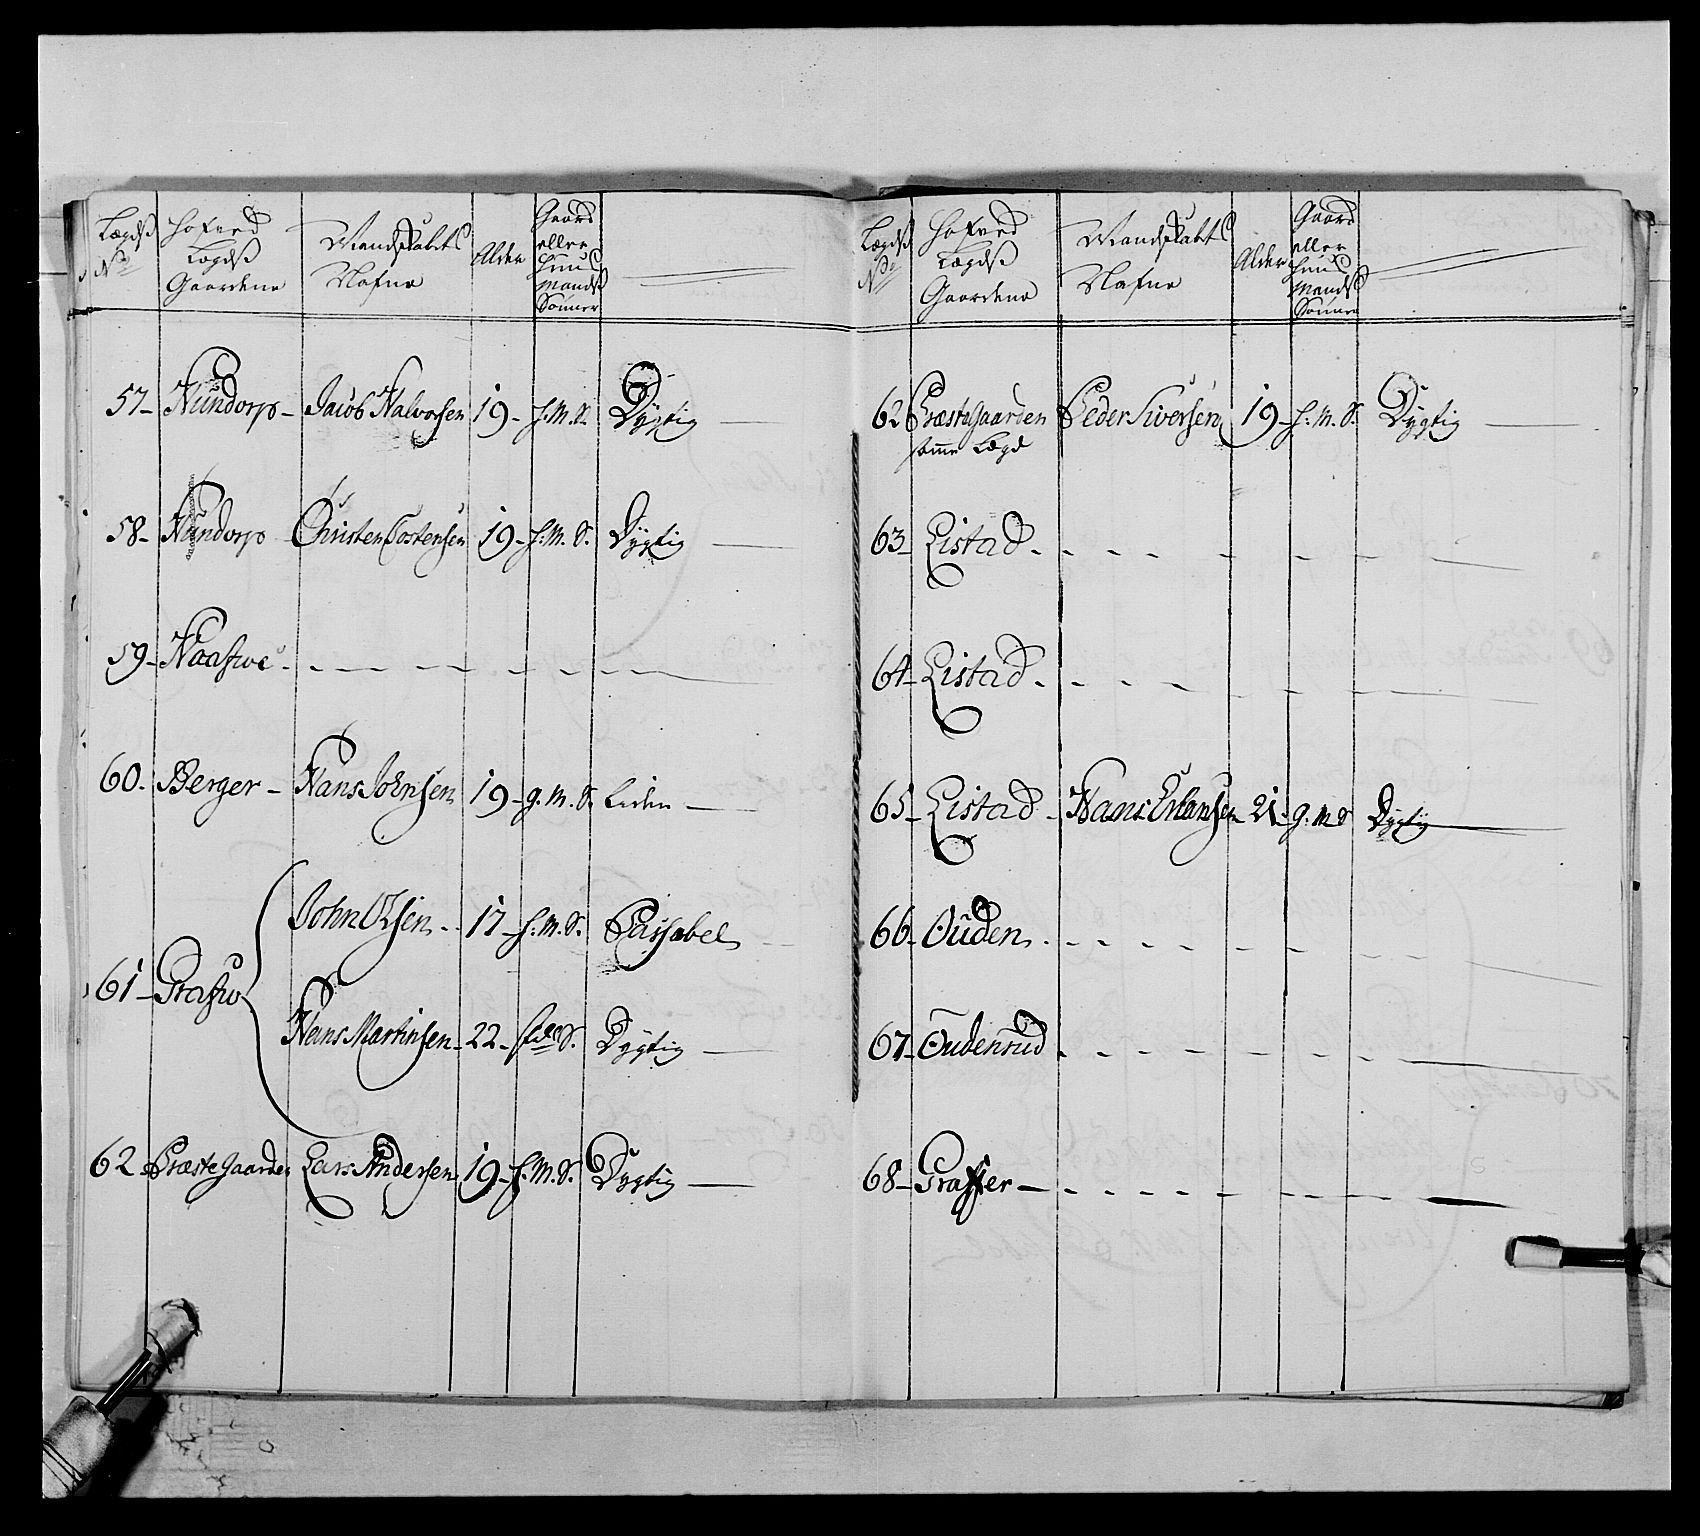 Lægds No
Hofved Lægds Gaardene
Mandskabets Nafne
Alder
Gaard eller Huus Mands Sønner
57- Hundorp- Jacob Halvorsen 19- H.M.S. Dygtig
58- Hundorp Christen Tostensen 19- H.M.S. Dygtig
59-
60- Berger- Hans Johnsen 19- G.M.S. Liden
61-
John Olsen 17- H.M.S. Passabel
Hans Martinsen 22- S. Dygtig
62 Præstegaarden Lars Andersen 19- H.M.S. Dygtig
Lægds No
Hofved Lægds Gaardene
Mandskabets Nafne
Alder
Gaard eller Huus Mands Sønner
62 Præstegaarden Peder Siversen 19- H.M.S. Dygtig
samme Lægd
63- Listad
64- Listad
65- Listad- Hans Erlansen 21- G.M.S Dygtig
66- Ouden
67- Oudensrud
68- Graffer